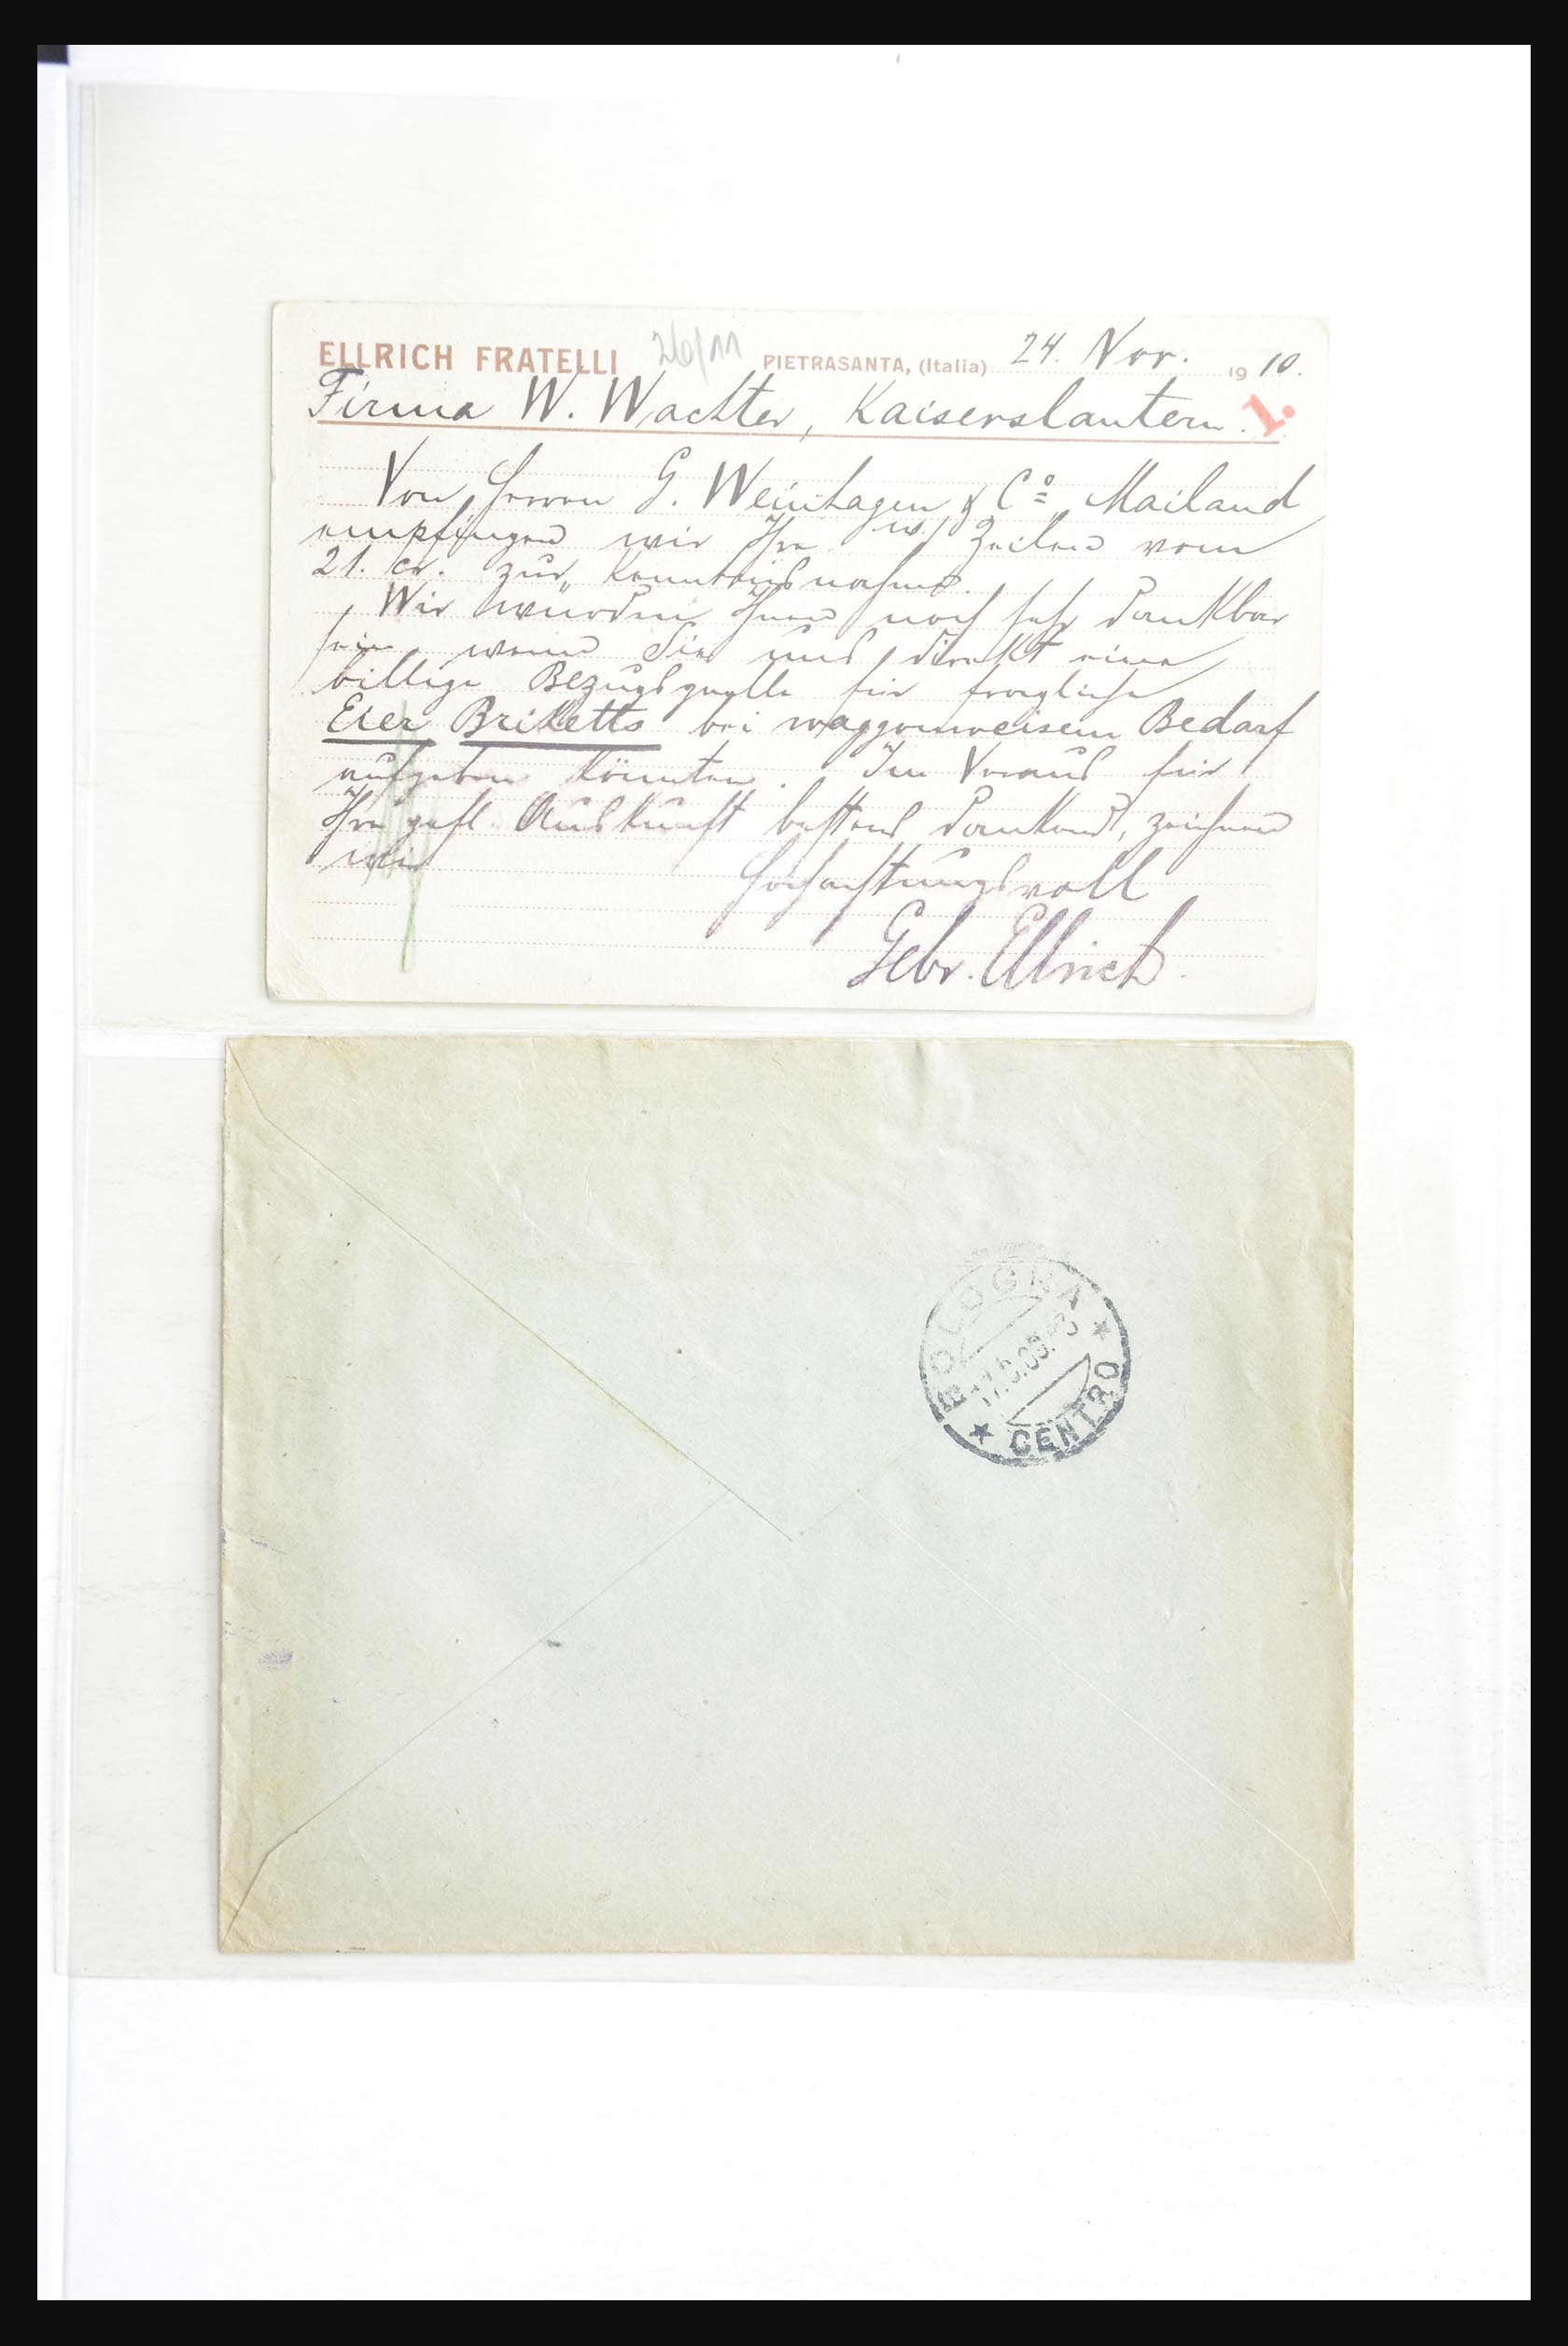 ELLRICH FRATELLI 26/11 PIETRASANTA, (Italia) 24. Nov. 1910.
Firma W. Wachter, Kaiserslautern. 1.
Von Herren G. Weinhagen & Cº, Mailand
empfingen wir Ihre w. Zeilen vom
21. cr. zur Kenntnisnahme.
Wir würden Ihnen noch sehr dankbar
sein wenn Sie uns direkt eine
billige Bezugsquelle für fragliche
Eier Briketts bei waggonweisem Bedarf
aufgeben könnten. Im Voraus für
Ihre gefl. Auskunft bestens dankend, zeichnen
wir
Hochachtungsvoll
Gebr. Ellrich.
BOLOGNA
CENTRO